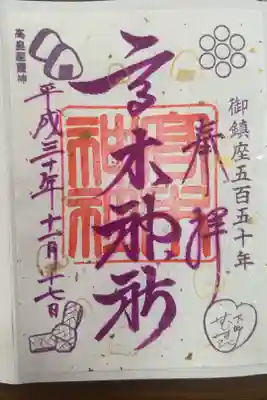 御鎮座五百五十年
奉拝
高木神社
高木神社
平成三十年十一月十七日
高皇産靈神
下町
むすび